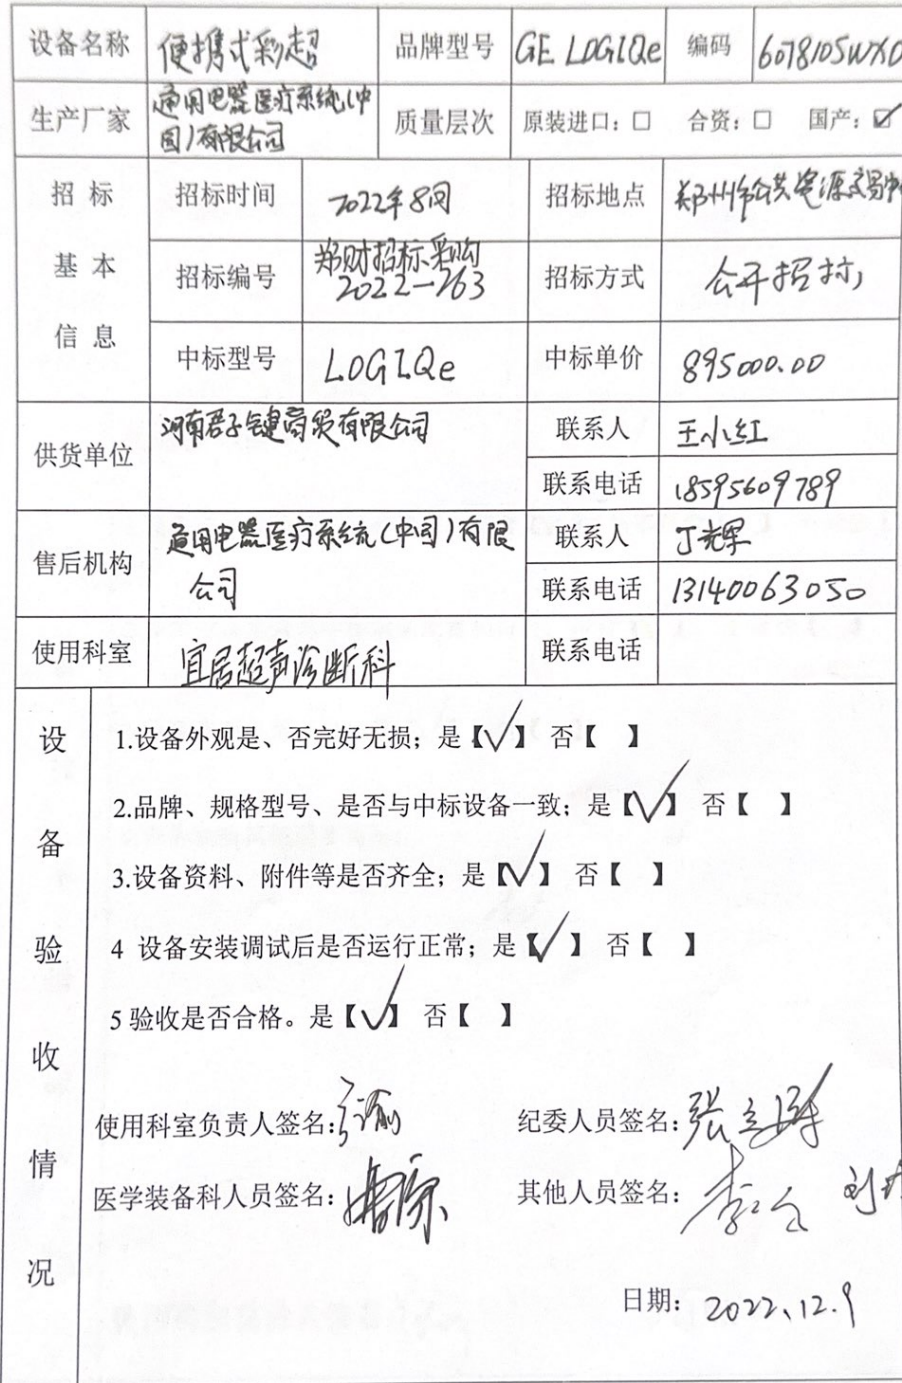 设备名称 便携式彩超 品牌型号 GE LOGIQe 编码 6078105WX0
生产厂家 通用电器医疗系统(中国)有限公司 质量层次 原装进口：□ 合资：□ 国产：☑
招标基本信息
招标时间 2022年8月 招标地点 郑州市公共资源交易中
招标编号 郑财招标采购
2022-263 招标方式 公开招标
中标型号 LOGIQe 中标单价 895000.00
供货单位 河南君子健商贸有限公司 联系人 王小红
联系电话 18595609789
售后机构 通用电器医疗系统(中国)有限
公司 联系人 丁光军
联系电话 13140063050
使用科室 宜居超声诊断科 联系电话
设备验收情况
1.设备外观是、否完好无损；是【√】 否【 】
2.品牌、规格型号、是否与中标设备一致；是【√】 否【 】
3.设备资料、附件等是否齐全；是【√】 否【 】
4 设备安装调试后是否运行正常；是【√】 否【 】
5 验收是否合格。是【√】 否【 】
使用科室负责人签名： 纪委人员签名：
医学装备科人员签名： 其他人员签名：
日期：2022.12.9